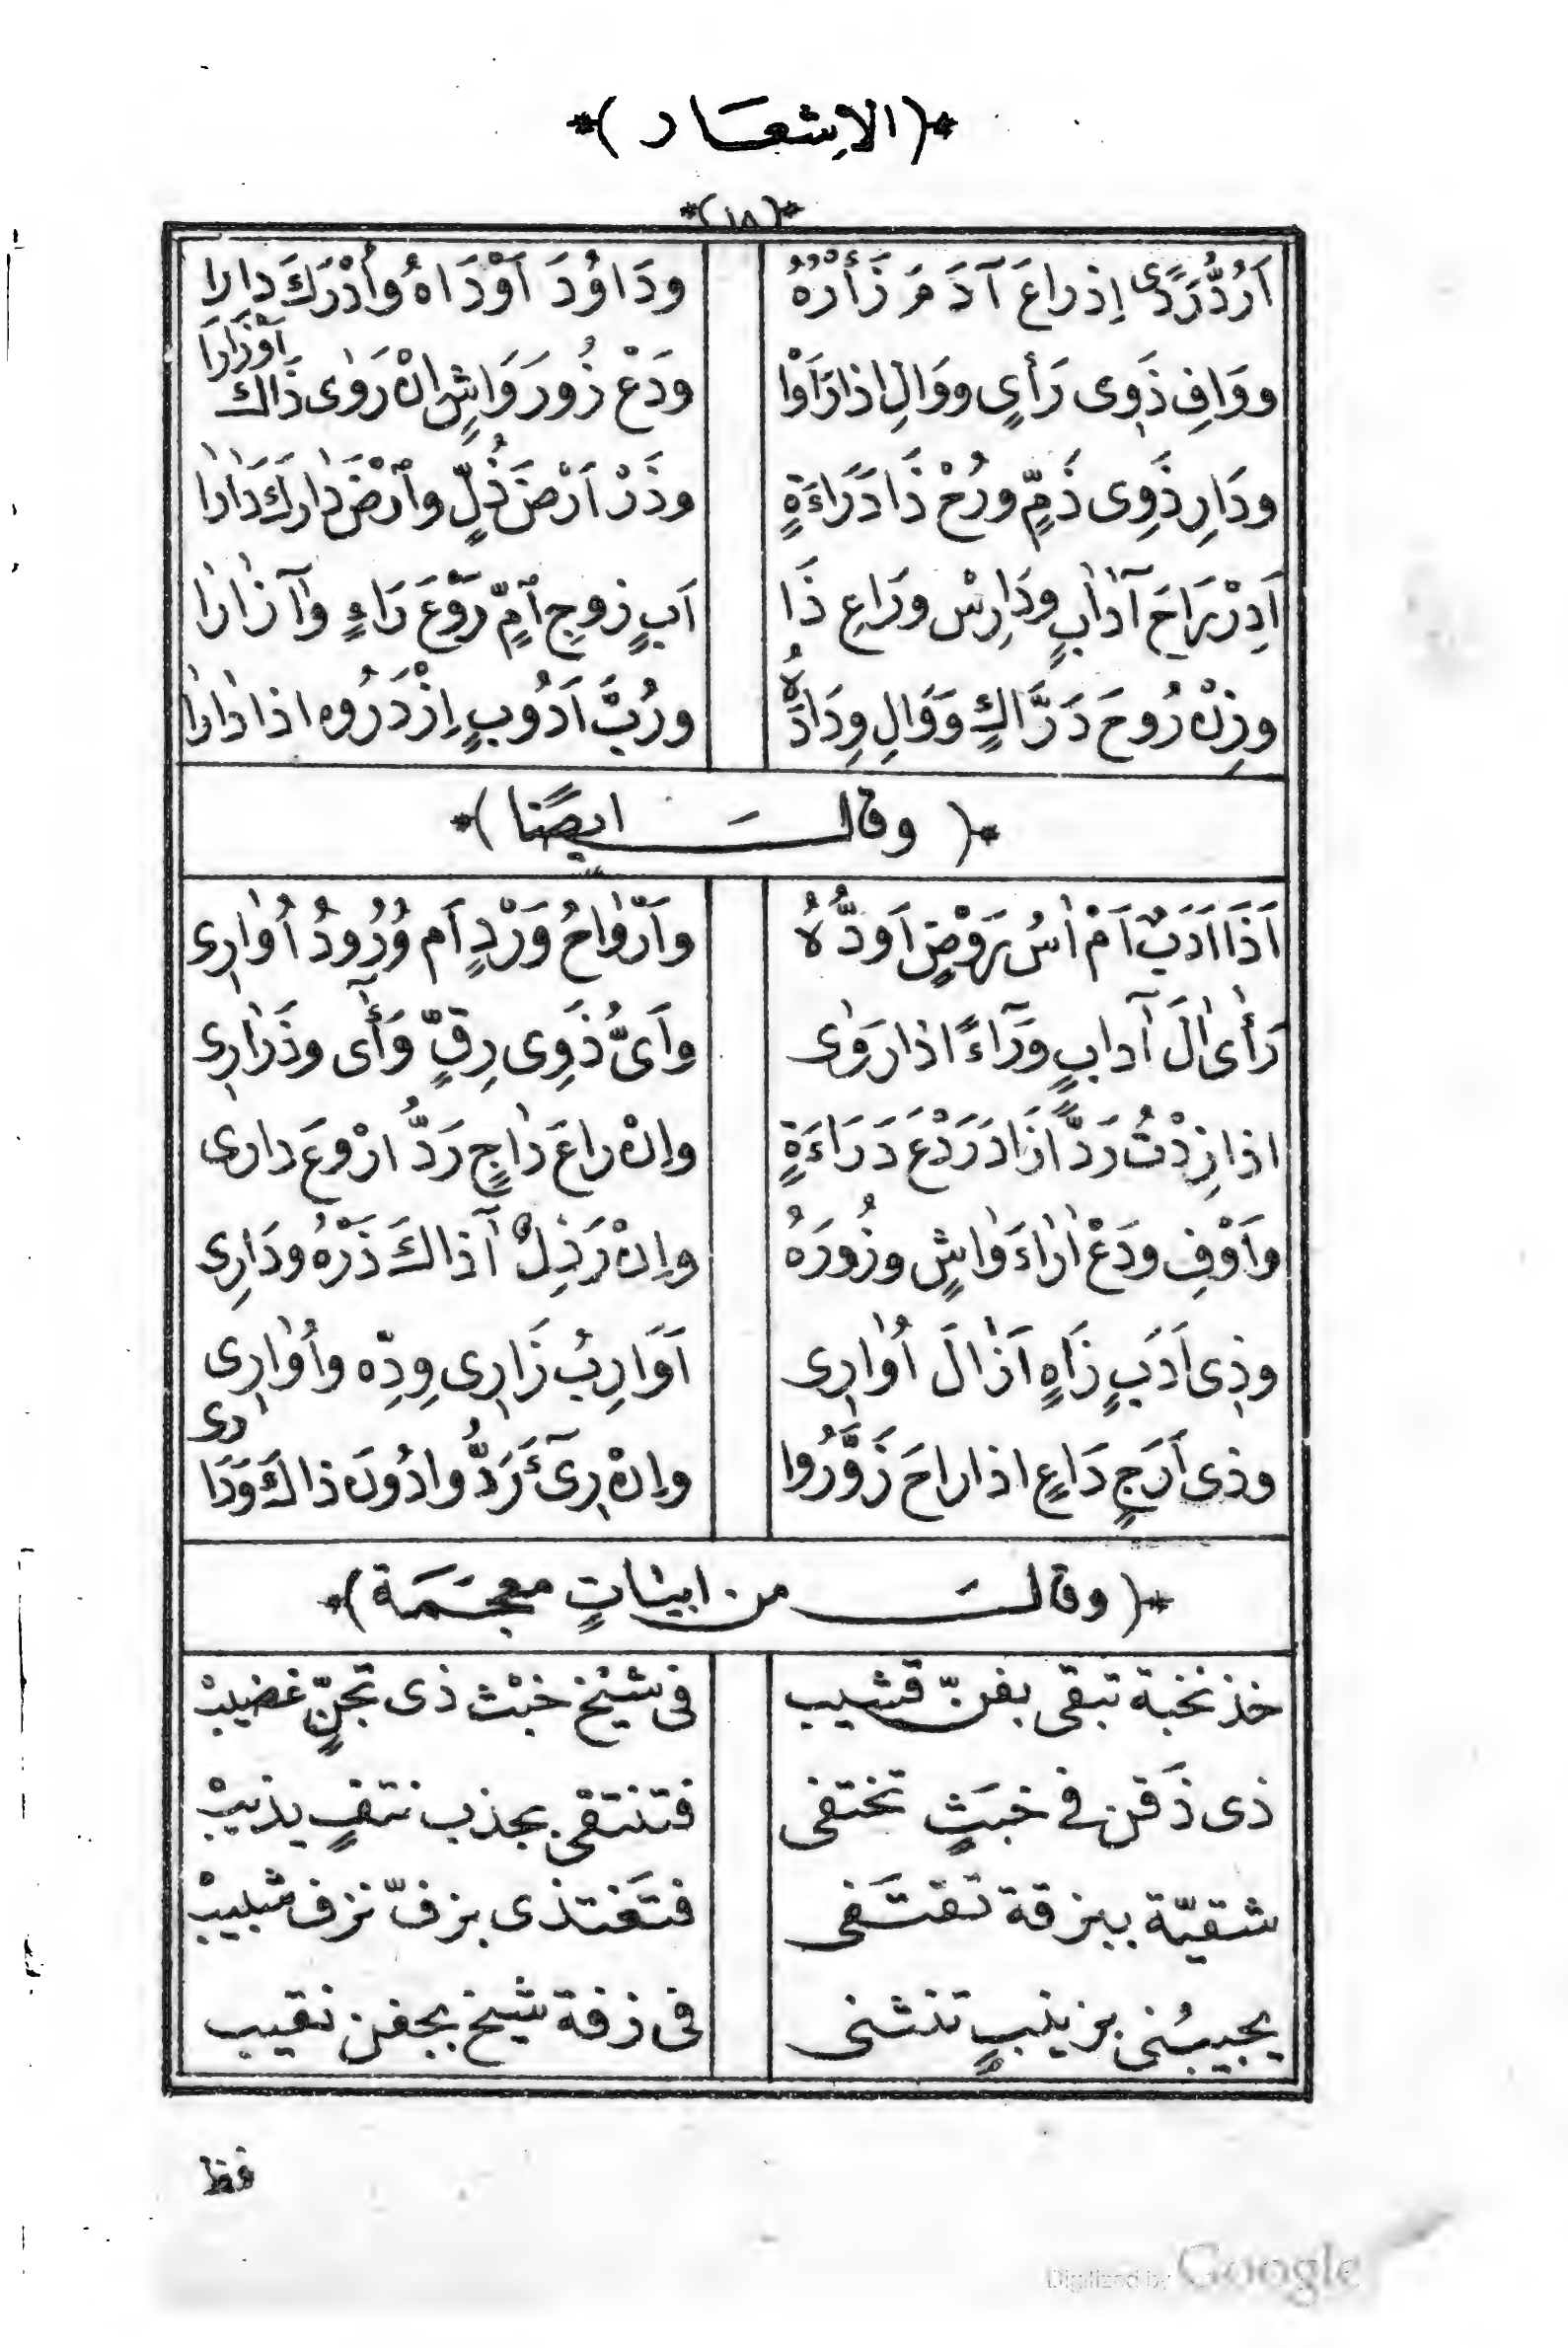 *(الاشعَـار)*
*(١٨)*
اَرُدُّ رَدًى إذراعَ آدَمَ زَأْرُهُ ودَاوُدَ اَوْدَاهُ وأَدْرَكَ دارا
ووَافِ ذَوِى رَأىٍ ووَالِ اذا رَاَوْا ودَعْ زُورَ وَاشٍ اِنْ رَوٰى ذَاكَ اَوْزَارَا
ودَارِ ذَوِى ذَمٍّ ورُحْ ذَا دَرَاءَةٍ وذَرْ اَرْضَ ذُلٍّ واَرْضَ دٰارِكَ دَارٰا
اَدِرْ رَاحَ آدٰابٍ ودَارِسْ ورَاعِ ذَا اَبٍ زوجِ اُمٍّ رَوَّعَ رَاءٍ وآزٰارٰا
وزِنْ رُوحَ دَرَّاكٍ وَوَالِ وِدَادَهُ ورُبَّ اَدُوبٍ اِزْدَرُوهُ اذا دٰارٰا
*(وقالـَ ايضًا)*
اَذَا اَدَبٌ اَمْ اٰسُ رَوْضٍ اَوَدُّهُ واَرْوٰاحُ وَرْدٍ اَم وُرُودُ اُوٰارِى
رَأىٰ اٰلَ آدابٍ وَرَآءً اذا رَوٰى واَىُّ ذَوِى رِقٍّ وَأٰى وذَرٰارِى
اذا زِدْتُ رَدًّا زَادَ رَدْعَ دَرَاءَةٍ وإنْ راعَ دٰاجٍ رَدُّ ارْوعَ دارى
واَوْفِ ودَعْ اٰرٰاءَ وٰاشٍ وزُورَهُ وإنْ رَذِلٌ آذاكَ ذَرْهُ ودَارِى
وذِى اَدَبٍ زَاهٍ اَزٰالَ اُوٰارِى اَوَارِبُ زَارِى وِدِّه واُوٰارِى
وذِى اَرَجٍ دَاعٍ اذا راحَ زَوَّرُوا وإنْ رِىَٔ رَدُّوا دُونَ ذاكَ وَدَادِى
*(وقالـَ من ابيٰاتٍ معجَمَة)*
خذ نخبة تبقى بفنّ قشيب فى شيْخ خبْث ذى تجنٍّ غضيبْ
ذى ذَقن فى خبَثٍ تختفى فتنتقْى بجذب نتفٍ يذيبْ
شقيّة ببزقة تقتَفى فتَغتذى بزفّ نزف شبيبْ
يجيبُنى بزينبٍ تنثنى فى زفة شيخ بجفن نقيب
فظ
Digitized by Google